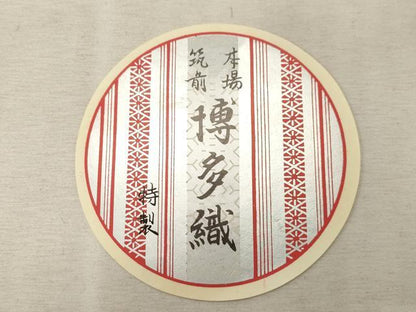 本場
筑前
博多織
特製